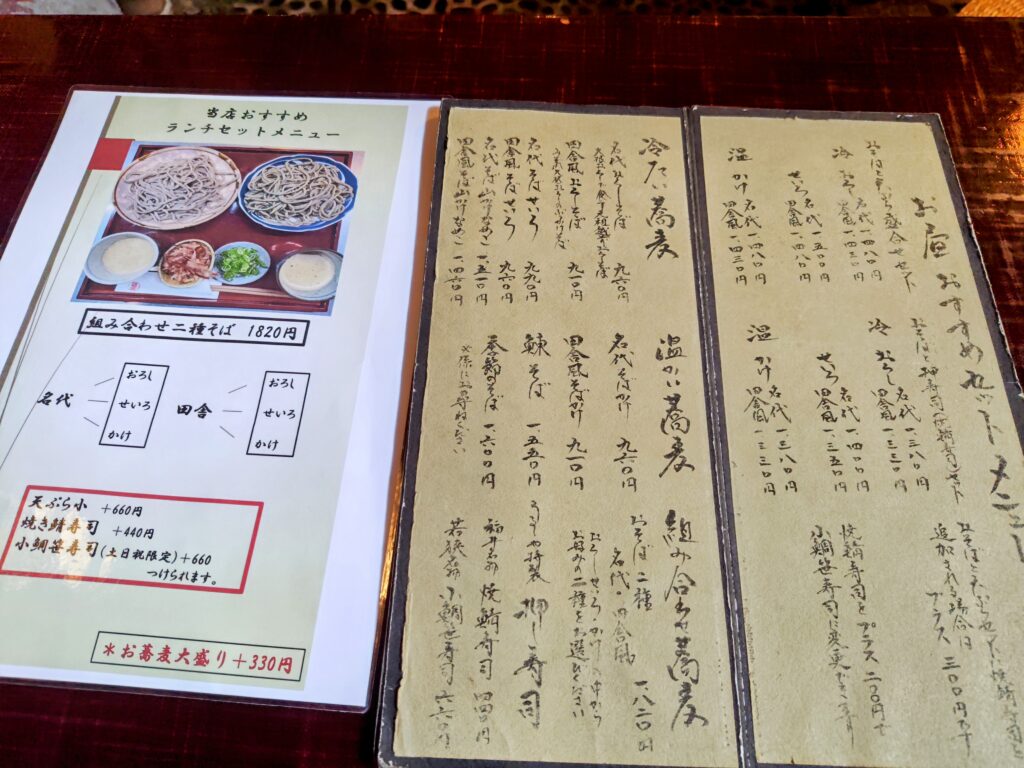 当店おすすめ
ランチセットメニュー
組み合わせ二種そば 1820円
名代
おろし
せいろ
かけ
田舎
おろし
せいろ
かけ
天ぷら小 +660円
焼き鯖寿司 +440円
小鯛笹寿司(土日祝限定)+660
つけられます。
*お蕎麦大盛り+330円
冷たい蕎麦
名代おろしそば 九六〇円
田舎風おろしそば 九一〇円
名代そばせいろ 九九〇円
田舎風そばせいろ 九四〇円
名代そば山かけなめこ 一.五一〇円
田舎風そば山かけなめこ 一.四六〇円
温かい蕎麦
名代そばかけ 九六〇円
田舎風そばかけ 九一〇円
鰊そば 一.五五〇円
季節のそば 一.六〇〇円
※係にお尋ねください
組み合わせ蕎麦
おそば二種
名代・田舎風 一.八二〇円
おろし・せいろ・かけの中から
お好みの二種をお選びください
押し寿司
福井名物 焼鯖寿司 四四〇円
若狭名物 小鯛笹寿司 六六〇円
お昼おすすめセットメニュー
冷 おろし 名代 一.四八〇円
田舎風 一.四三〇円
せいろ 名代 一.五一〇円
田舎風
温 かけ 名代 一.四八〇円
田舎風 一.四三〇円
冷 おろし 名代 一.三八〇円
田舎風
せいろ 名代 一.四〇〇円
田舎風 一.三五〇円
温 かけ 名代 一.三八〇円
田舎風 一.三三〇円
追加される場合は
プラス 三〇〇円です
焼鯖寿司をプラス 二〇〇円で
小鯛笹寿司に変更できます